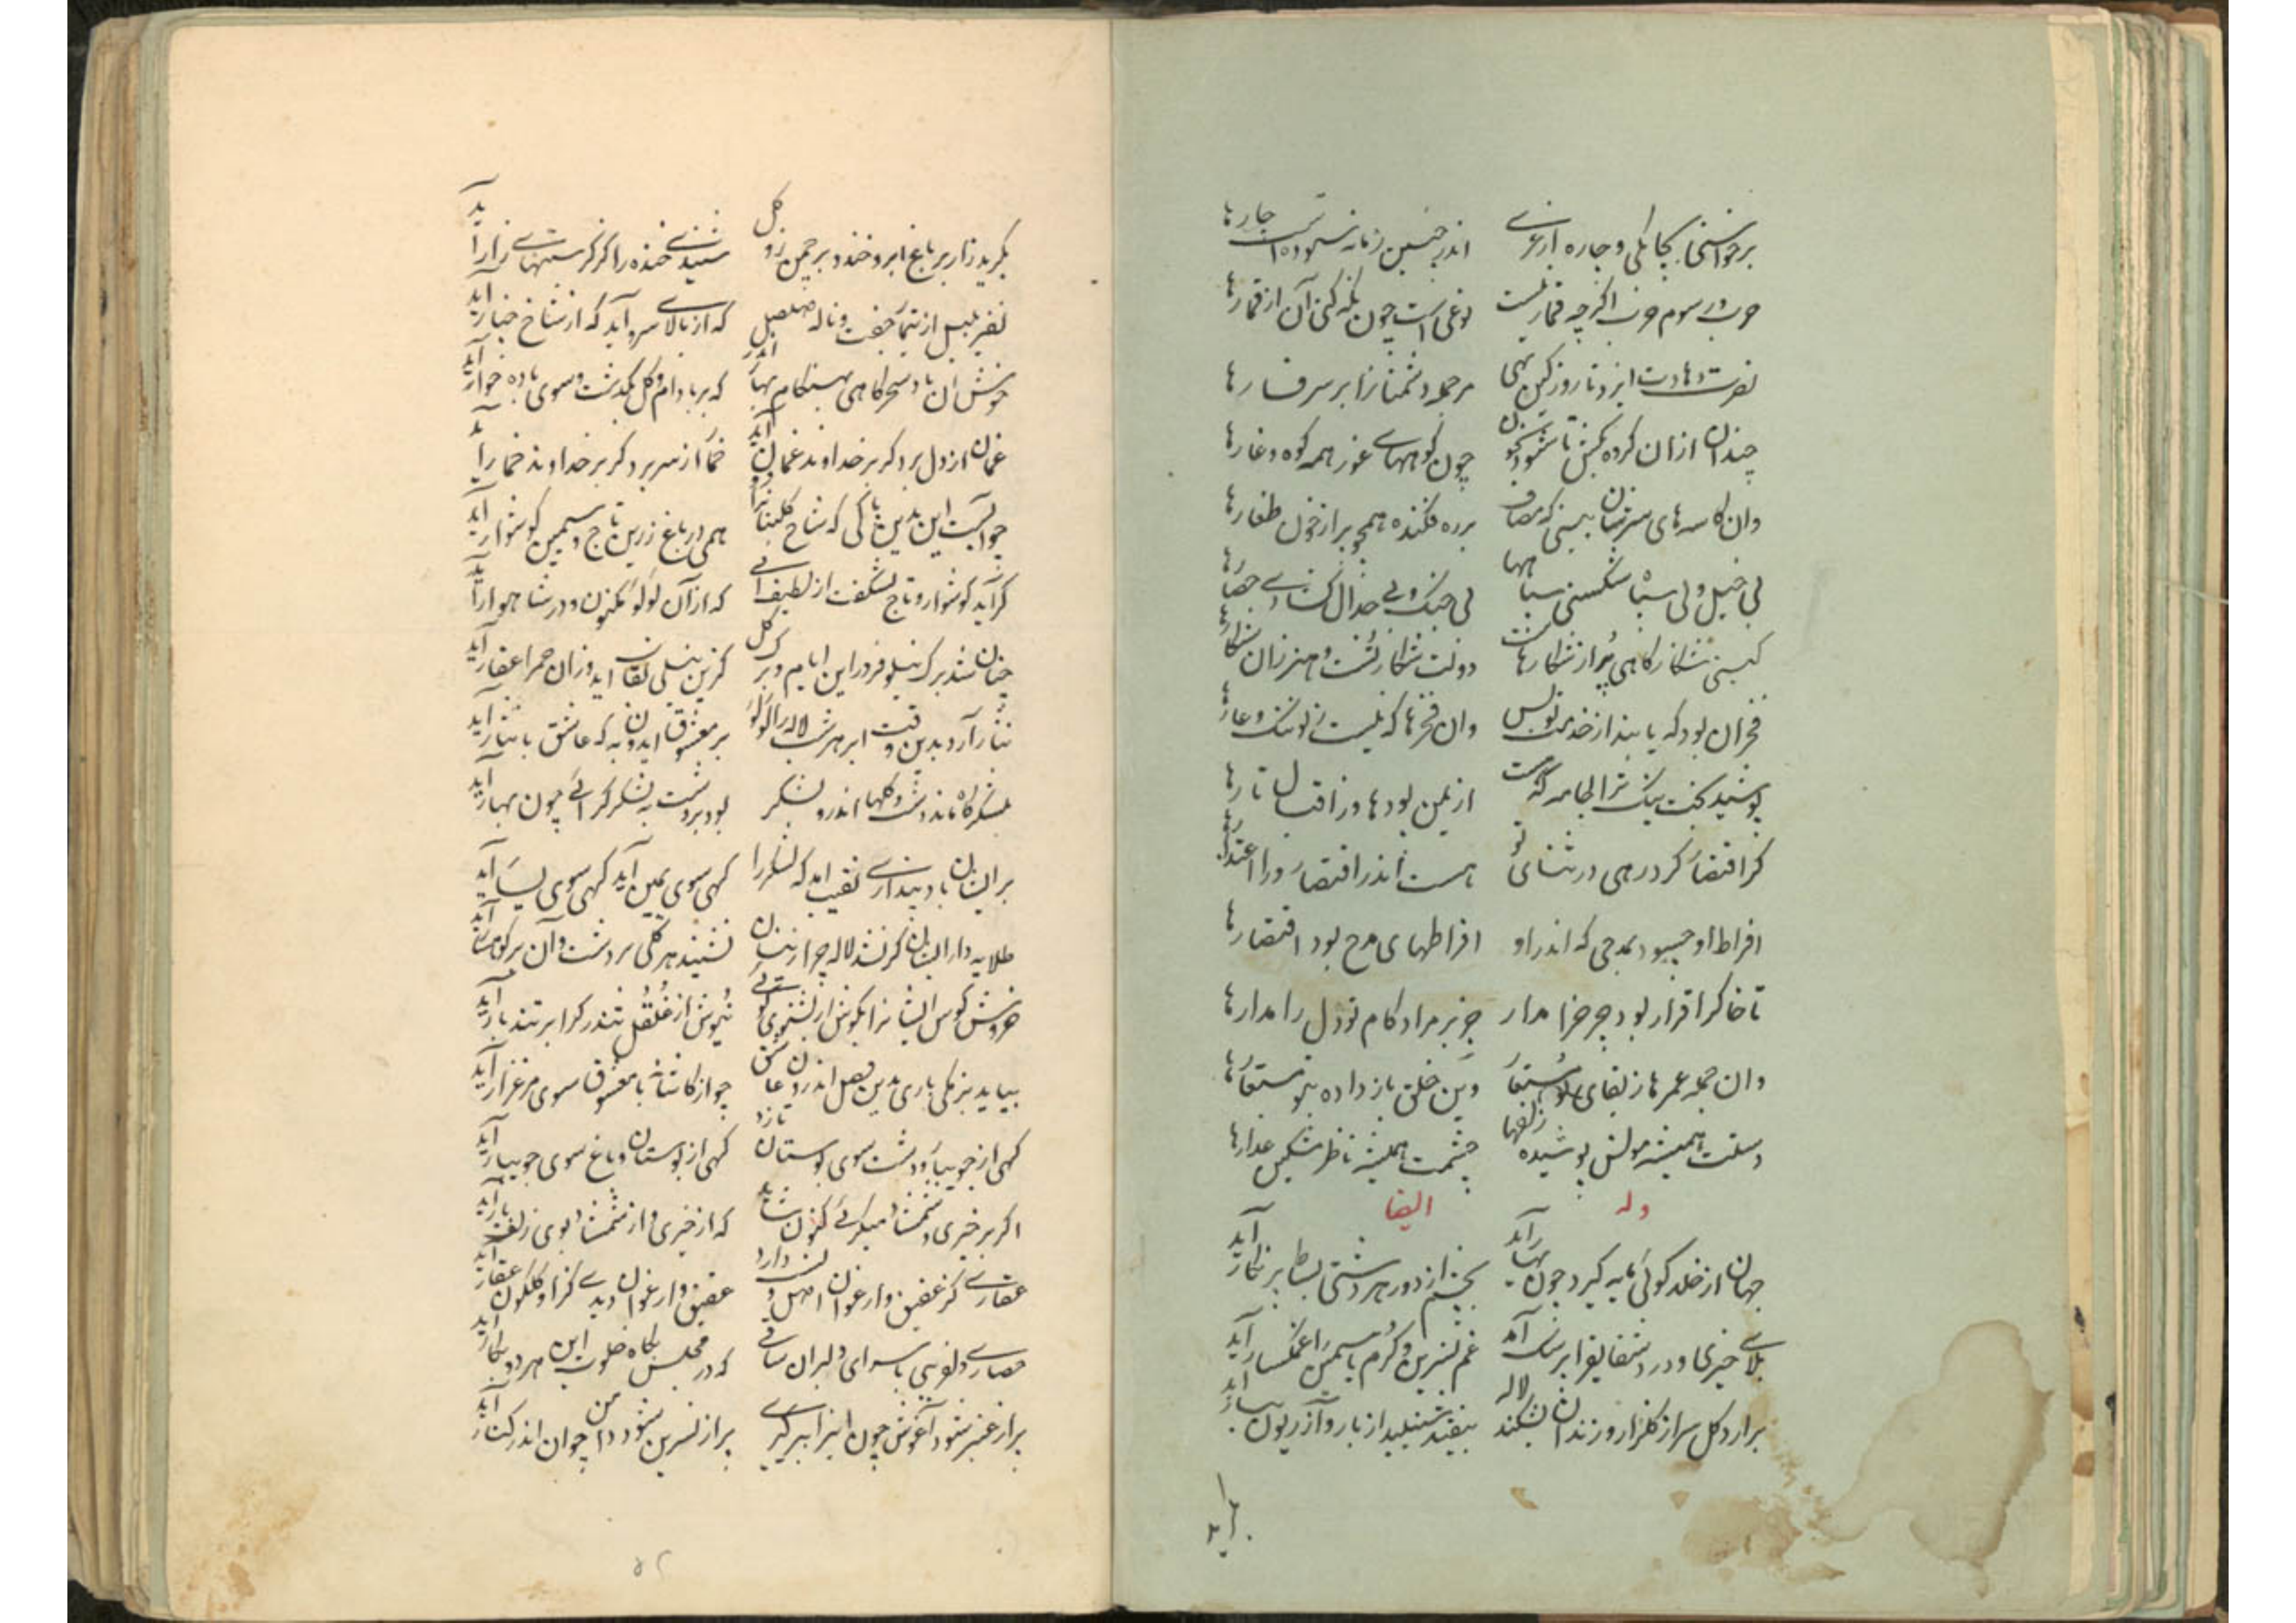 برخواستی بچابکی و چاره ارغزی اندر چنین زمانه ستوده است چارها
حرب سوم حرب اگرچه قمار نیست نوعی است چون نگه کنی آن از قمارها
نصرت دهادت ایزد تا روز کین نهی مر جمله دشمنانرا بر سر فسارها
چندان ازان گروه بکش تا شود کنون چون کوههای غور همه کوه و غارها
وان کاسه های سرشان بینی که مصاف برده فکنده همچو پر از خون طغارها
بی خیل و بی سپاه شکستی سپاهها بی جنگ و بی جدال گشادی حصارها
گیتی شکارگاهی پر از شکارهاست دولت شکار تست و هنر زان شکارها
فخر آن بود که یابند از خدمت تو بس وان فخرها که نیست ز تو ننگ و عارها
پوشید بخت نیک ترا جامه که هست از یمن پودها وز اقبال تارها
گر اقتصار کرد رهی در ثنای تو هست اندر اقتصار ورا اعتذارها
افراط او چسود بمدحی که اندر او افراطهای مدح بود اقتصارها
تا خاک را قرار بود چرخ را مدار جز بر مراد و کام تو دل را مدارها
وان جمله عمرها ز بقای تو مستعار وین خلق باز داده بتو مستعارها
دستت همیشه مولش پوشیده زلفها چشمت همیشه ناظر مشکین عذارها
وله ایضا
جهان از خلد گوئی مایه گیرد چون بهار آید بچشم از دور هر دشتی بساط پرنگار آید
بلای خیری و درد شقایق را پزشک آمد غم نسرین و کرم یاسمین را غمگسار آید
برارد گل سر از گلزار و زندان بشکند لاله بیفتد شنبلید از بار و آذریون ببار آید
بگرید
بگرید زار بر باغ ابر و خندد بر چمن زو گل شنیدی خنده را کز گریستنهای زار آید
نفیر بلبل از تیمار جفت و ناله صلصل که از بالای سرو آید که از شاخ چنار آید
خوش آن باد سحرگاهی بهنگام بهار اندر که بر بادام و گل بگذشت و سوی باده خوار آید
غمان از دل برد گر بر خداوند غمان آید خمار از سر برد گر بر خداوند خمار آید
چو آبست این بدین پاکی که شاخ گلبنانرا زو همی در باغ زرین تاج و سیمین گوشوار آید
گر آید گوشوار و تاج نشگفت از لطیف آبی که از آن لؤلؤ مکنون و در شاهوار آید
چنان شد برگ نیلوفر در این ایام و برگ گل کزین نیلی نقاب آید وزان حمرا عقار آید
نثار آرد بدین وقت ابر هر شب لاله را لؤلؤ بر معشوق ایدون به که عاشق با نثار آید
بلشکرگاه ماند دشت و گلها اندرو لشکر بود بر دشت به لشکر گرائی چون بهار آید
بر ایشان باد پنداری نقیب آمد که لشکر را گهی سوی یمین آید گهی سوی یسار آید
طلایه دار ایشان گر نشد لاله چرا زینسان نشیند هر گلی بر دشت و آن بر کوهسار آید
خروش کوس ایشانرا بگوش ار بشنوی گوئی نیوش از غلغل تندر گر ابر تند بار آید
بیاید بزمکی باری بدین فصل اندرون عاشق چو از کاشانه با معشوق سوی مرغزار آید
گهی از جویبار و دشت سوی بوستان تازد گهی از بوستان و باغ سوی جویبار آید
اگر بر خیری و شمشاد میگرئی کنون شاید که از خیری و از شمشاد بوی زلف یار آید
عقاری کز عقیق و ارغوان اصل و نسب دارد عقیق و ارغوان دیدی کزا و گلگون عقار آید
حصاری دلفریبی با سرای دلبران ساقی که در مجلس بگاه خلوت این هر دو بکار آید
پر از عنبر شود آغوش چون این را ببر گیری پر از نسرین شود دامن چو آن اندر کنار آید
۵۲